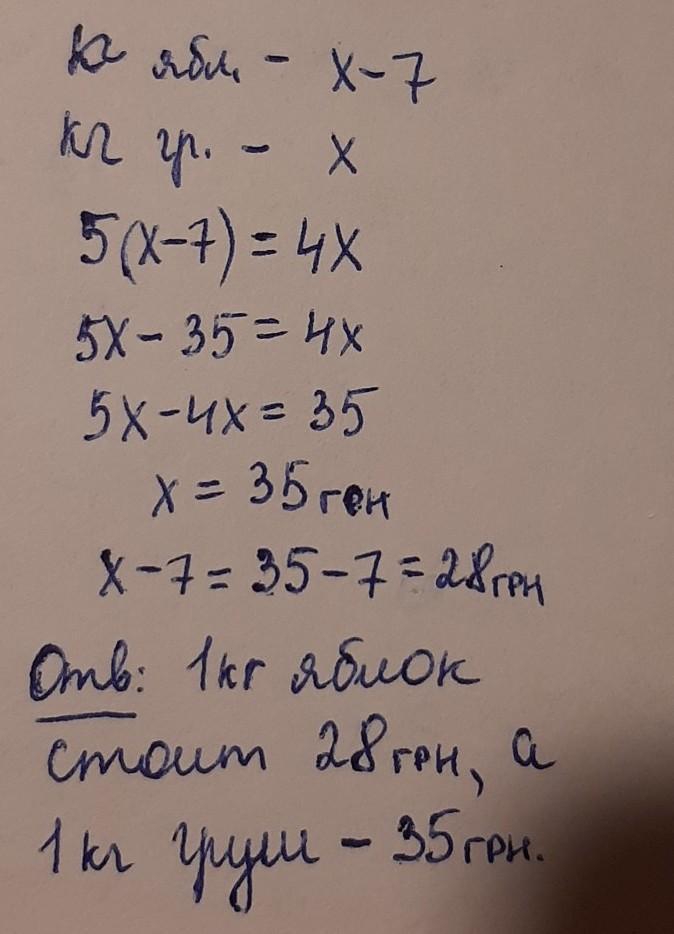 кг ябл. - х-7
кг гр. - х
5(х-7)=4х
5х-35=4х
5х-4х=35
х=35грн
х-7=35-7=28грн
Отв: 1кг яблок
стоит 28грн, а
1кг груш - 35грн.